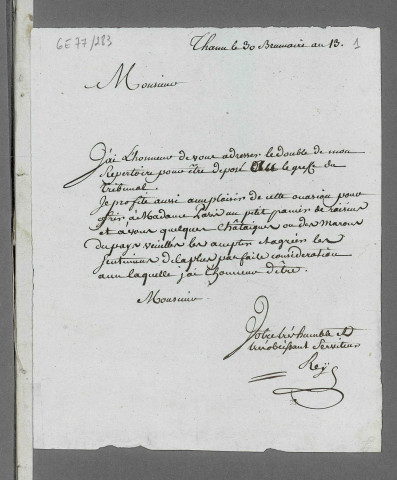 GE 77/283
Thann le 30 Brumaire an 13.
1
Monsieur
J'ai L'honneur de vous adresser le double de mon
Repertoire pour être deposé le greffe du
Tribunal.
Je profite aussi au plaisir de cette ocasion pour
ofrir à Madame un ptit panier de raisins
et à vous quelques Châtaignes ou des Marons
du pays veuillés les accepter et agréer les
Sentimens de la plus parfaite consideration
avec laquelle j'ai L'honneur d'être.
Monsieur
Votre très humble et
très obeissant Serviteur
Reÿ